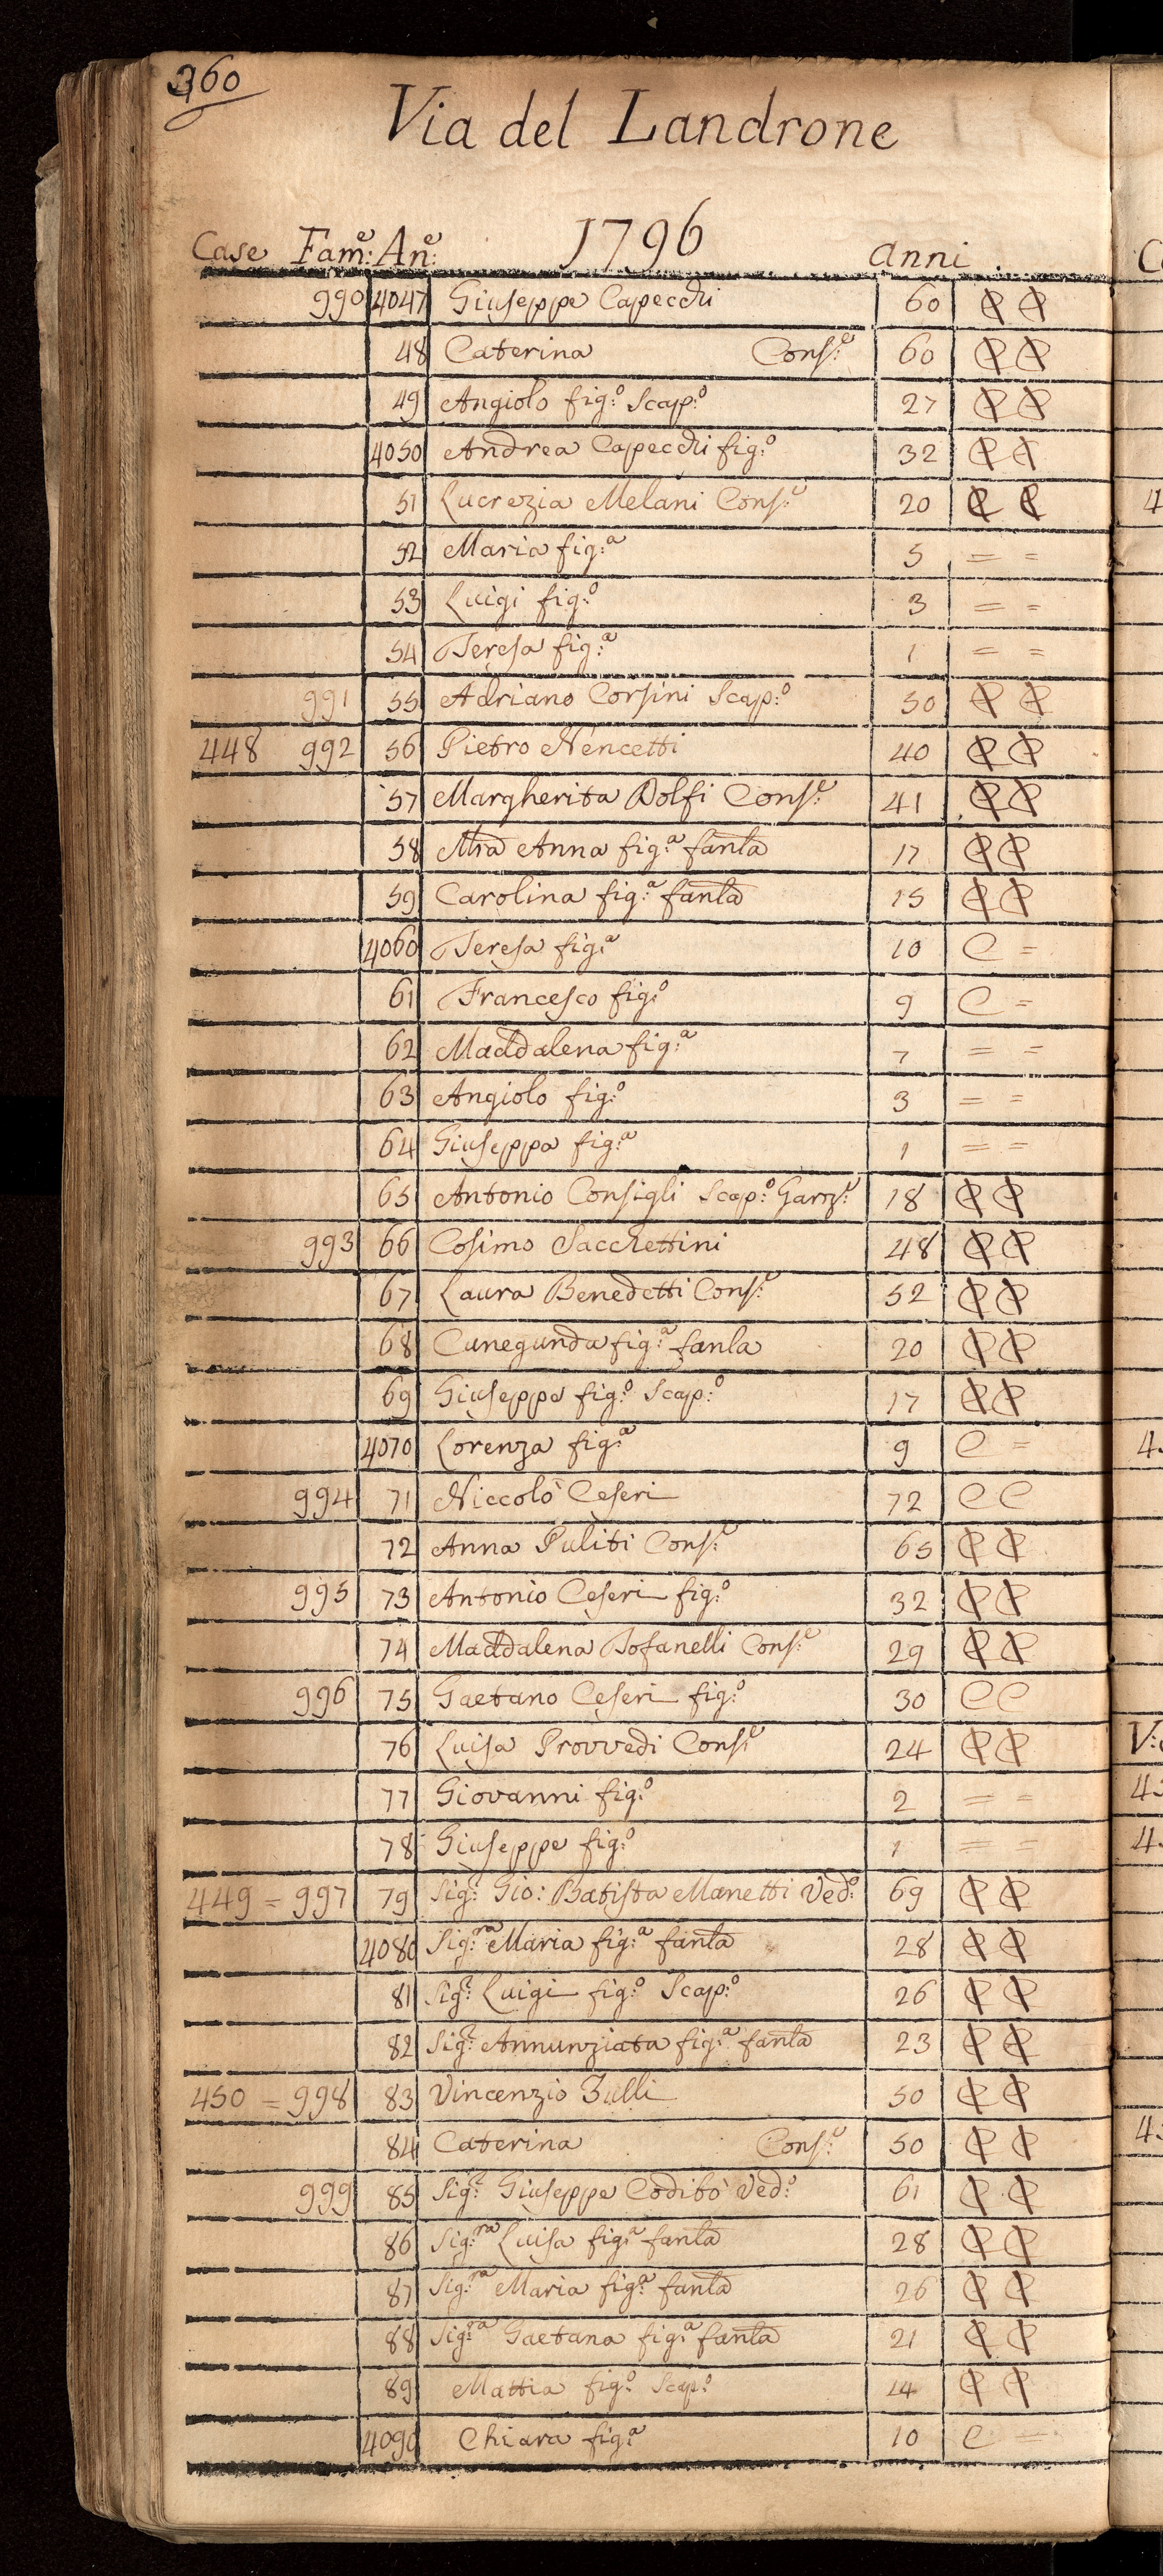 360
Via del Landrone
1796
Case Fam:e An:e anni
990 4047 Giuseppe Capecchi 60 C C
48 Caterina Cons:e 60 C C
49 Angiolo fig:o Scap:o 27 C C
4050 Andrea Capecchi fig:o 32 C C
51 Lucrezia Melani Cons:e 20 C C
52 Maria fig:a 5 = =
53 Luigi fig:o 3 = =
54 Teresa fig:a 1 = =
991 55 Adriano Corsini Scap:o 50 C C
448 992 56 Pietro Nencetti 40 C C
57 Margherita Dolfi Cons:e 41 C C
58 Mra Anna fig:a fanla 17 C C
59 Carolina fig:a fanla 15 C C
4060 Teresa fig:a 10 C =
61 Francesco fig:o 9 C =
62 Maddalena fig:a 7 = =
63 Angiolo fig:o 3 = =
64 Giuseppa fig:a 1 = =
65 Antonio Consigli Scap:o Garz:e 18 C C
993 66 Cosimo Sacchettini 48 C C
67 Laura Benedetti Cons:e 52 C C
68 Cunegunda fig:a fanla 20 C C
69 Giuseppe fig:o Scap:o 17 C C
4070 Lorenza fig:a 9 C =
994 71 Niccolò Ceseri 72 C C
72 Anna Puliti Cons:e 65 C C
995 73 Antonio Ceseri fig:o 32 C C
74 Maddalena Tofanelli Cons:e 29 C C
996 75 Gaetano Ceseri fig:o 30 C C
76 Luisa Provvedi Cons:e 24 C C
77 Giovanni fig:o 2 = =
78 Giuseppe fig:o 1 = =
449 = 997 79 Sig:r Gio: Batista Manetti Ved:o 69 C C
4080 Sig:ra Maria fig:a fanla 28 C C
81 Sig:r Luigi fig:o Scap:o 26 C C
82 Sig:a Annunziata fig:a fanla 23 C C
450 = 998 83 Vincenzio Zulli 50 C C
84 Caterina Cons:e 50 C C
999 85 Sig:r Giuseppe Codibò Ved:o 61 C C
86 Sig:ra Luisa fig:a fanla 28 C C
87 Sig:ra Maria fig:a fanla 26 C C
88 Sig:ra Gaetana fig:a fanla 21 C C
89 Mattia fig:o Scap:o 14 C C
4090 Chiara fig:a 10 C =